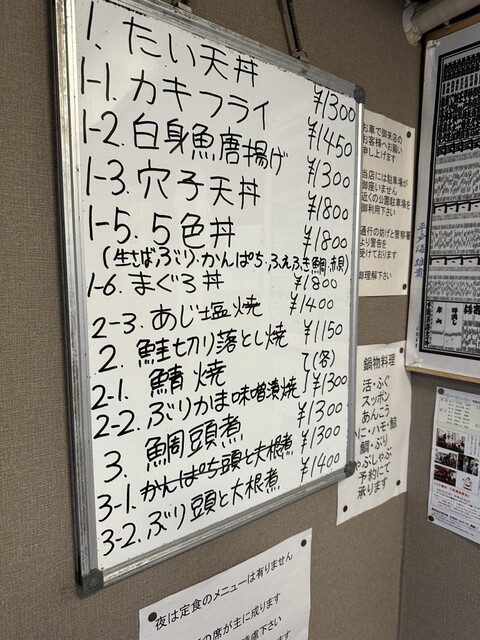 1. たい天丼
1-1. カキフライ ¥1300
1-2. 白身魚唐揚げ ¥1450
1-3. 穴子天丼 ¥1300
1-5. 5色丼 ¥1800
(生さば,ぶり,かんぱち, 鯛,赤貝) ¥1800
1-6. まぐろ丼 ¥1800
2-3. あじ塩焼 ¥1400
2. 鮭切り落とし焼 ¥1150
2-1. 鯖焼 て(各)
2-2. ぶりかま味噌漬焼 ¥1300
3. 鯛頭煮 ¥1300
3-1. かんぱち頭と大根煮 ¥1300
3-2. ぶり頭と大根煮 ¥1400
お車で御来店の
お客様へお願い
申し上げます
当店には駐車場が
御座いません
近くの公園駐車場を
御利用下さい
通行の妨げと警察署
より警告を
受けております
御理解下さい
鍋物料理
活・ふぐ
スッポン
あんこう
に・ハモ・鯨
鯛・ぶり
やぶしゃぶ
予約にて
承ります
夜は定食のメニューは有りません
の席が主に成ります